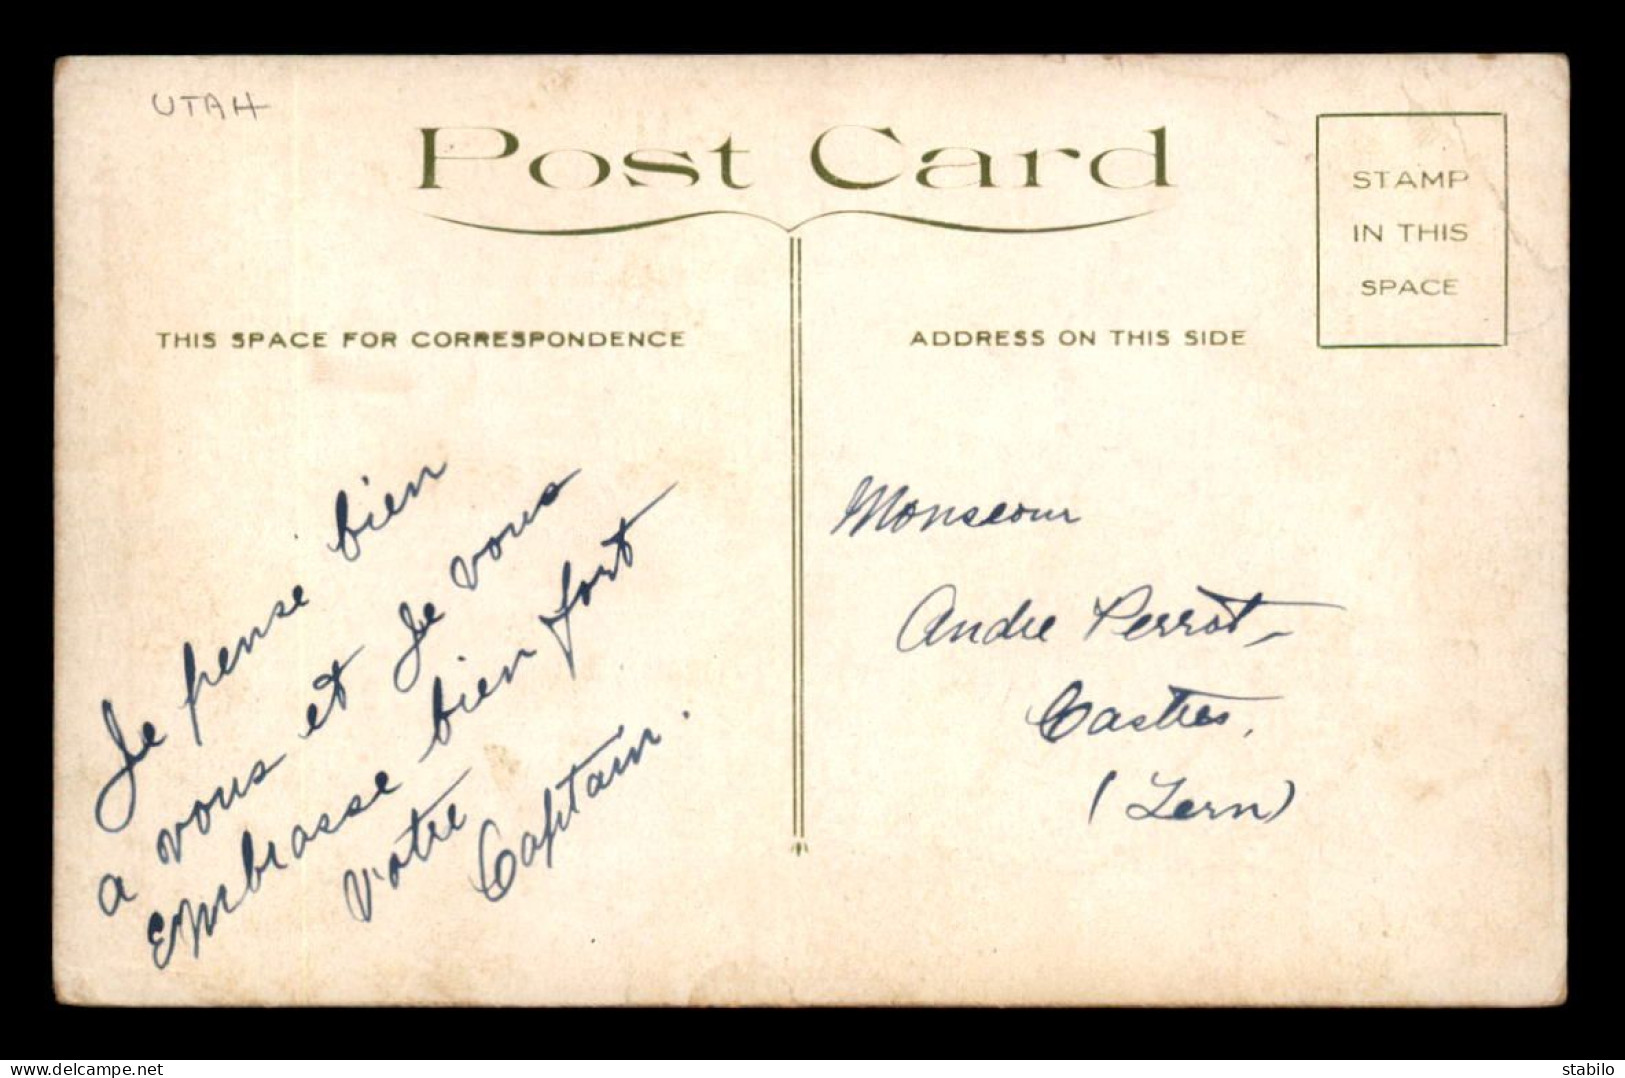 UTAH
Post Card
STAMP
IN THIS
SPACE
THIS SPACE FOR CORRESPONDENCE
ADDRESS ON THIS SIDE
Je pense bien
a vous et Je vous
embrasse bien fort
Votre
Captain.
Monseour
Andre Perrot
Castres,
(Tern)
delcampe.net
stabilo